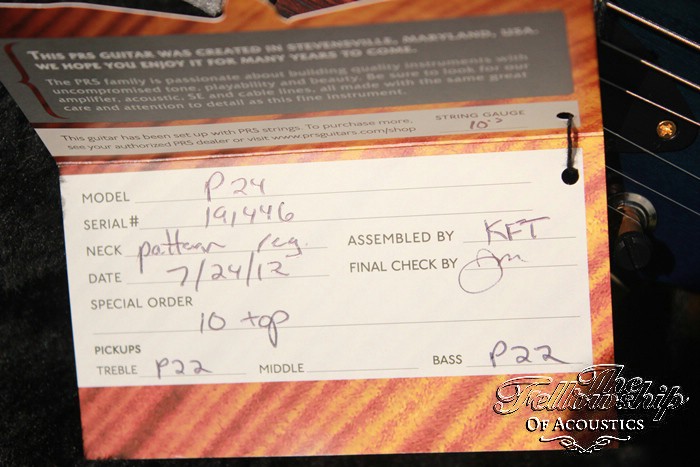 THIS PRS GUITAR WAS CREATED IN STEVENSVILLE, MARYLAND, USA.
WE HOPE YOU ENJOY IT FOR MANY YEARS TO COME.
The PRS family is passionate about building quality instruments with
uncompromised tone, playability and beauty. Be sure to look for our
amplifier, acoustic, SE and cable lines, all made with the same great
care and attention to detail as this fine instrument.
This guitar has been set up with PRS strings. To purchase more,
see your authorized PRS dealer or visit www.prsguitars.com/shop
STRING GAUGE
10's
MODEL P24
SERIAL# 191446
NECK pattern reg. ASSEMBLED BY KFT
DATE 7/24/12 FINAL CHECK BY
SPECIAL ORDER
10 top
PICKUPS
TREBLE P22 MIDDLE BASS P22
The
Fellowship
OF ACOUSTICS